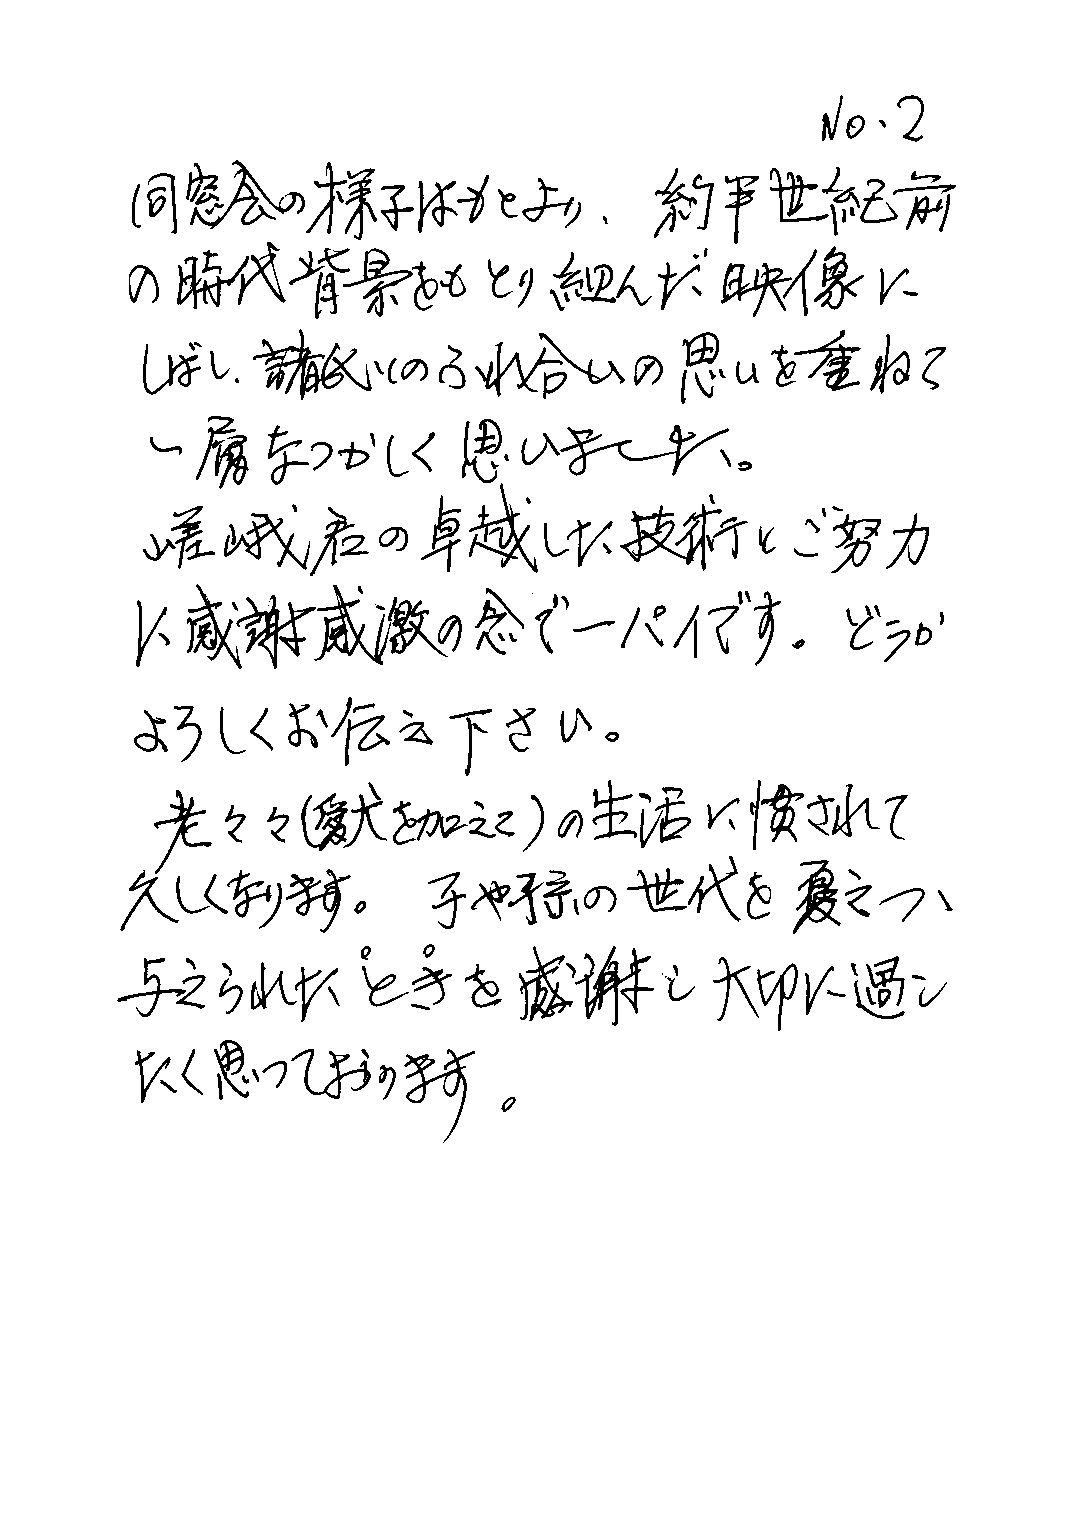 No.2
同窓会の様子はもとより、約半世紀前
の時代背景をもとり組んだ映像に
しばし、諸氏とのふれ合いの思いを重ねて
一層なつかしく思いました。
嵯峨君の卓越した技術とご努力
に感謝感激の念で一パイです。どうか
よろしくお伝え下さい。
老々々(愛犬を加えて)の生活に慣されて
久しくなります。子や孫の世代を憂えつゝ
与えられたときを感謝し大切に過し
たく思っております。